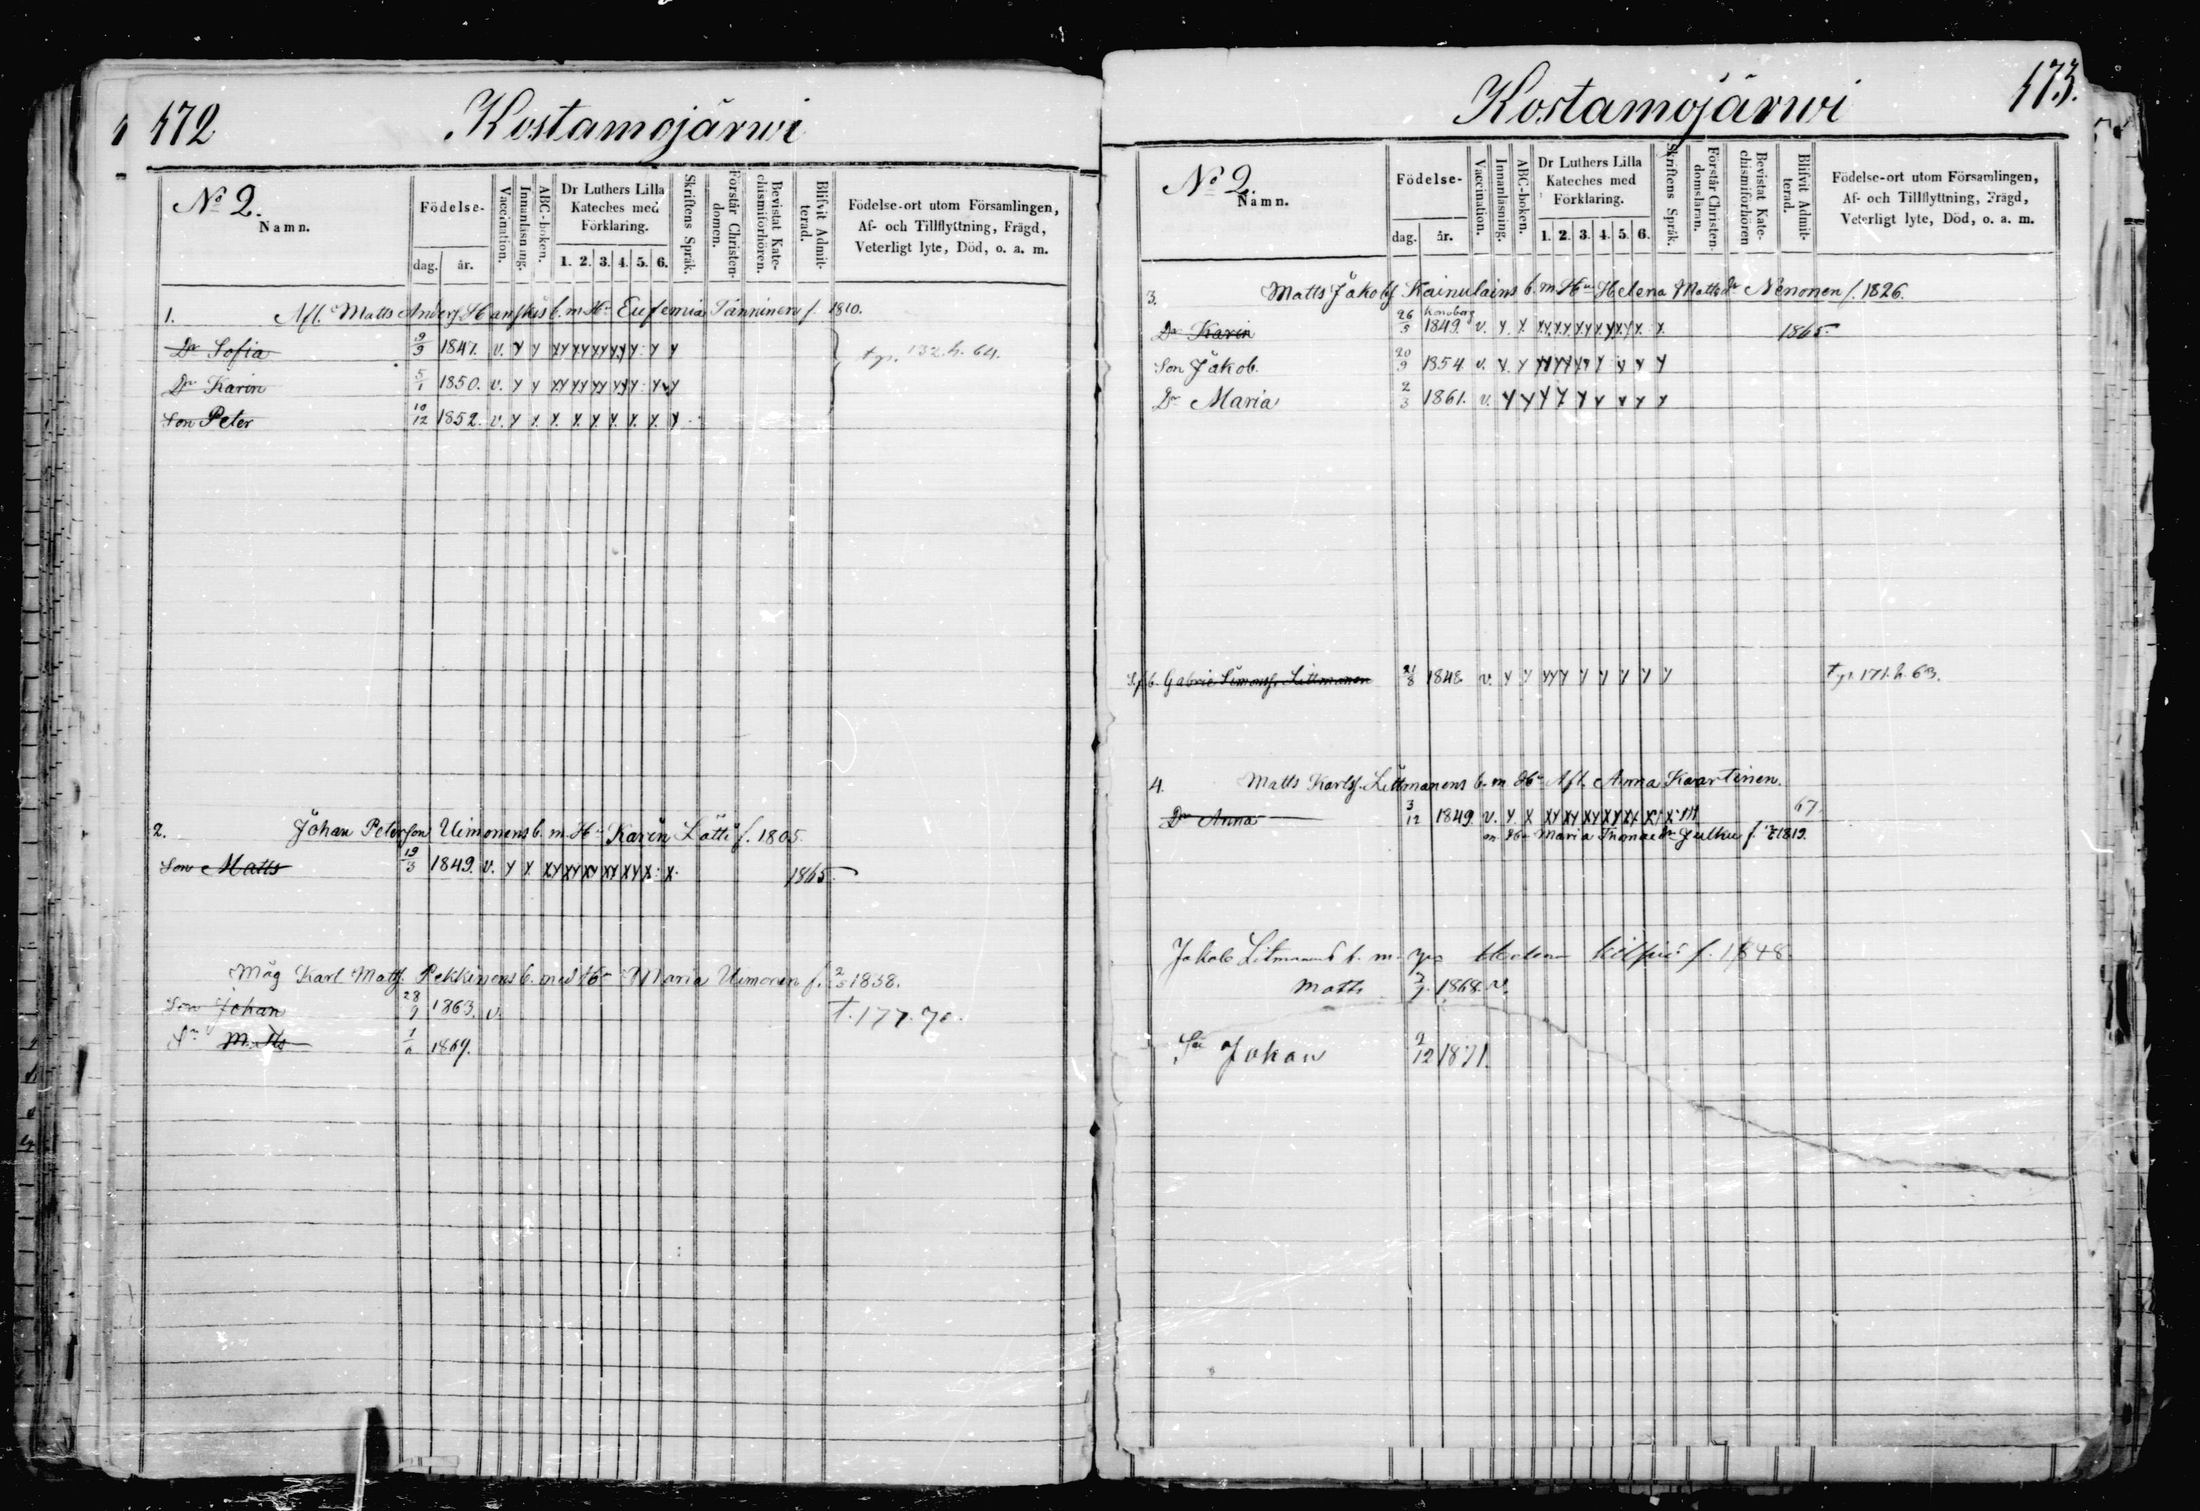 172
Kostamojärwi
No 2.
Namn.
Födelse-
dag. år.
Vaccination.
Innanläsning.
ABC-boken.
Dr Luthers Lilla Kateches med Förklaring.
1. 2. 3. 4. 5. 6.
Skriftens Språk.
Förstår Christendomen.
Bevistat Katechismiförhören.
Blifvit Admitterad.
Födelse-ort utom Församlingen,
Af- och Tillflyttning, Frägd,
Veterligt lyte, Död, o. a. m.
1. Afl. Matts Andersf. b. m. Hu Eufemia Tanninen f. 1810.
Dr Sofia 9/9 1847. v. y y xy xy xy xy y y y
Dr Karin 5/1 1850. v. y y xy xy xy xy y y y
Son Peter 10/12 1852. v. y y. y. y. y. y. y. y. y
132. h. 64.
2. Johan Peterson Uimonens b. m. Hu Karin Lätti f. 1805.
Son Matts 19/3 1849. v. y x xy xy xy xy xy x x. 1865.
Måg Karl Matsf. Pekkinens b. med Hu Maria Uimonen f. 1838.
Son Johan 28/9 1863. v.
Matts 1869.
t. 177. 70.
173.
Kostamojärwi
No 2.
Namn.
Födelse-
dag. år.
Vaccination.
Innanläsning.
ABC-boken.
Dr Luthers Lilla Kateches med Förklaring.
1. 2. 3. 4. 5. 6.
Skriftens Språk.
Förstår Christendomsläran.
Bevistat Katechismiförhören
Blifvit Admitterad.
Födelse-ort utom Församlingen,
Af- och Tillflyttning, Frägd,
Veterligt lyte, Död, o. a. m.
3. Matts Jakobsf. Kainulains b. m. Hu Helena Mattsdr Nenonen f. 1826.
Dr Karin 26/5 1849. v. y. x xy xy xy xy xy x. x 1865
Son Jakob. 20/9 1854. v. y. y xy xy xy y y y y y
Dr Maria 2/3 1861. v. y y y y y y y y y
Gabriel Simonsf. Littmanen 21/8 1848. v. y y xy y y y y y y 171. h. 63.
4. Matts Karlsf. Littmanens b. m. Hu Afl. Anna Kaartinen.
Dr Anna 3/12 1849. v. y x xy xy xy xy xy x x 67.
m Hu Maria Thomasdr Julku f. 1819.
Jakob Litmanens b. m. Helena f. 1848.
Matts 1868. v.
Johan 9/12 1871.